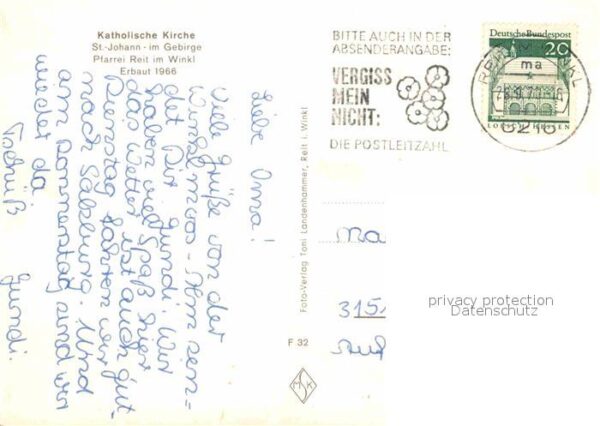 Katholische Kirche
St.-Johann - im Gebirge
Pfarrei Reit im Winkl
Erbaut 1966
Liebe Oma!
Viele Grüße von der
Winkelmoos-Alm sen-
det Dir Gundi. Wir
haben viel Spaß hier
das Wetter ist auch gut.
Dienstag fahren wir
nach Salzburg. Und
am Donnerstag sind wir
wieder da
Gundi.
Foto-Verlag Toni Landenhammer, Reit i. Winkl
F 32
BITTE AUCH IN DER
ABSENDERANGABE:
VERGISS
MEIN
NICHT:
DIE POSTLEITZAHL
Deutsche Bundespost
20
REIT IM WINKL
ma
LORSCH/HESSEN
Ma
315
privacy protection
Datenschutz